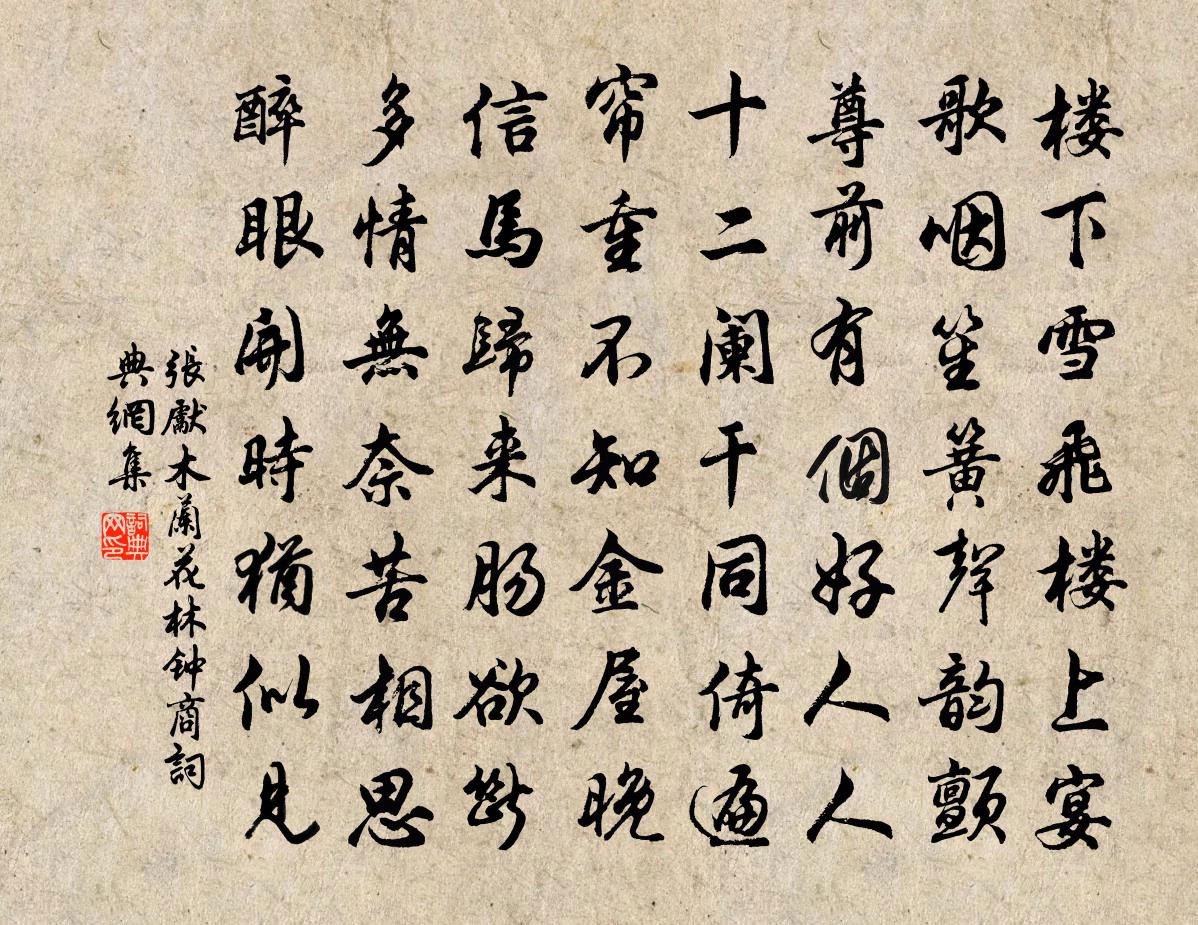 楼下雪飛楼上宴
歌咽笙簧聲韵顫
尊前有個好人人
十二阑干同倚遍
帘重不知金屋晚
信馬歸来肠欲斷
多情無奈苦相思
醉眼開時猶似見
張獻木蘭花林钟商詞
典網集
詞典
网印